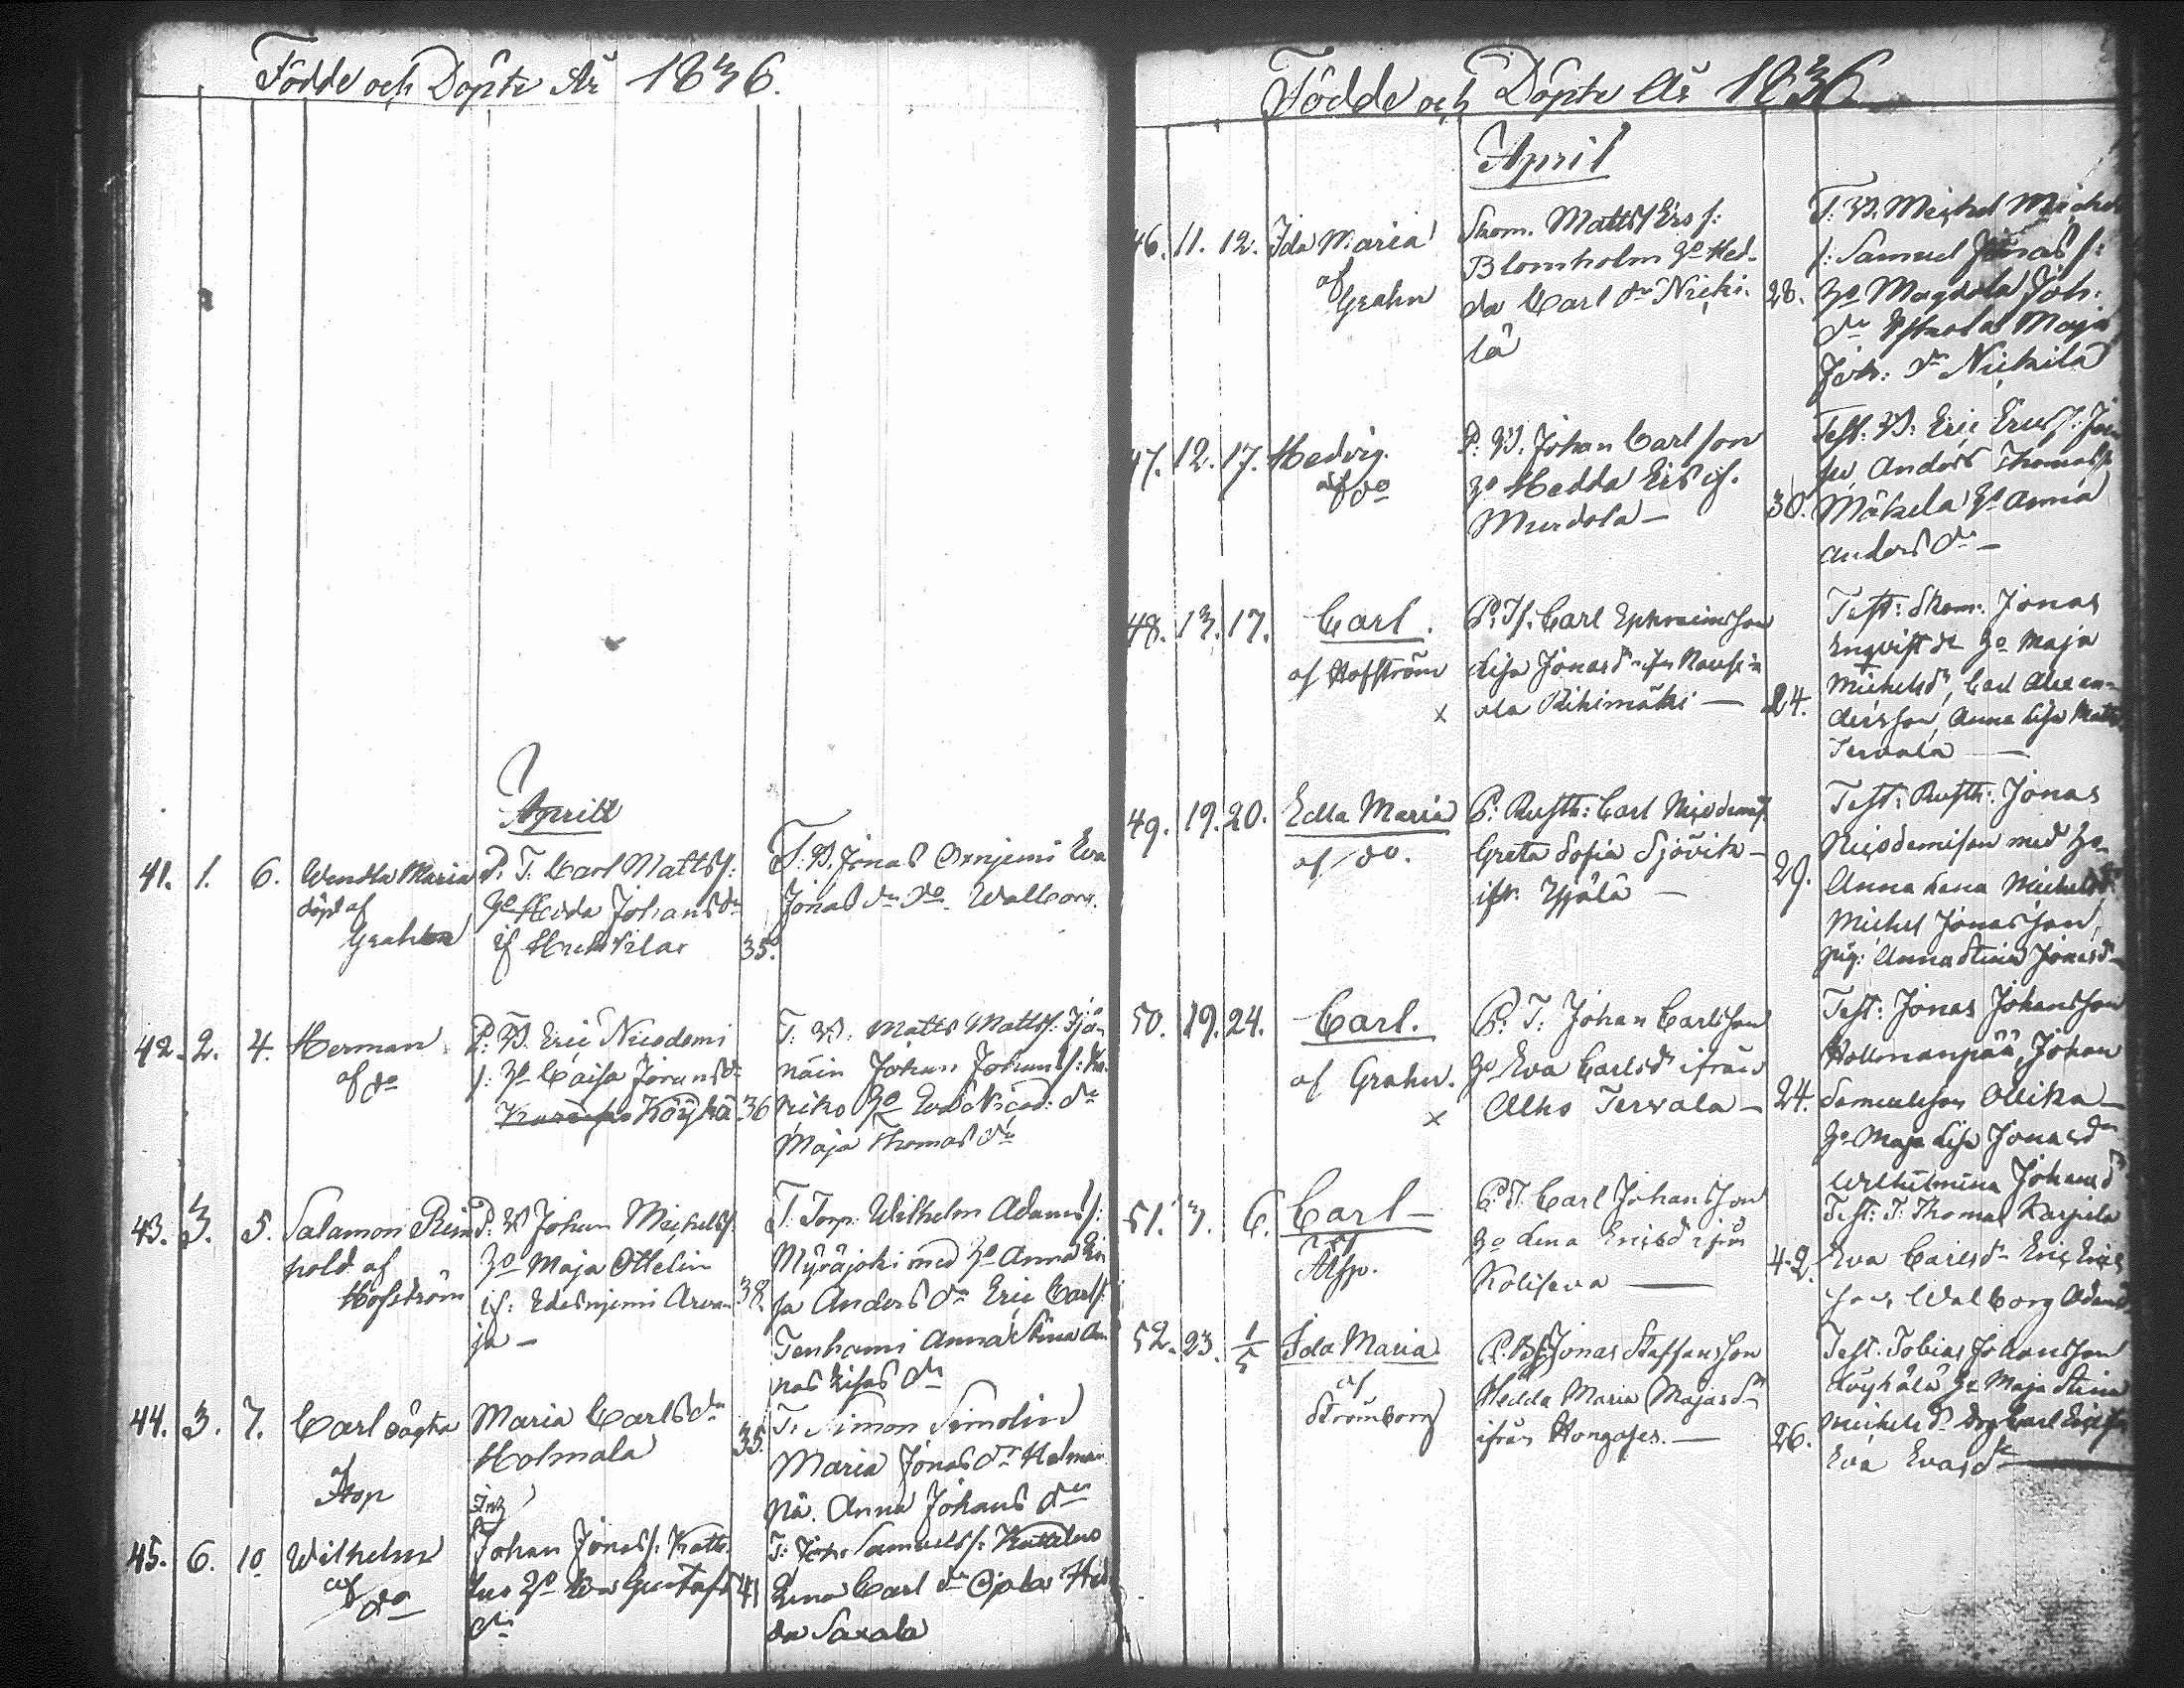 Födde och Döpte År 1836.
April
41. 1. 6. Wendla Maria
döpt af
Grahn
P. T. Carl Matts f:
Ho Hedda Johans dr
if
35.
T. B. Jonas Eva
Jonas dr do. Walborg.
42. 2. 4. Herman
af do
P. B. Eric Nicodemi
f: Ho Caisa Jörans dr
Köyhä
36
T. B. Matts Matts f.
näin Johan Johans f:
Ho Eva Nicod: dr
Maja Thomas dr
43. 3. 5. Salamon Rein
hold af
Hofström
P. B Johan Michels f.
Ho Maja Ottelin
if:
ja –
38.
T. Torp. Wilhelm Adams f:
Myräjoki med Ho Anna
sa Anders dr Eric Carl f:
Tenhami Anna Stina
nas dr
44. 3. 7. Carl oägta
af
Asp
Maria Carls dr
Holmala
35.
T. Simon Simolin
Maria Jonas dr
pä. Anna Johans dr
45. 6. 10 Wilhelm
af do
Johan Jonas f. Katte
lus Ho Eva Gustafs
dr
41
T: Joh. Samuels f: Kattelus
Lena Carl dr Ojala Hed
da Saxala
Födde och Döpte År 1836
April
46. 11. 12. Ida Maria
af
Grahn
Skom. Matts Ers f:
Blomholm Ho Hed-
da Carl dr Nicki-
lä
28.
T. B. Michel Michel
f: Samuel Jonas f:
Ho Magdala Joh.
dr Maja
Joh: dr Nickilä
47. 12. 17. Hedvig.
af do
P. B. Johan Carlson
Ho Hedda Ers if.
Murdola –
30.
Test: B: Eric Erics f:
Anders Thomas f
Mäkelä Ho Anna
Anders dr –
48. 13. 17. Carl.
af Hofström
x
P. Carl Ephraimsson
Lisa Jonasdr ifr
ala Rihimäki –
24.
Test: Skom. Jonas
Enqvist dr Ho Maja
Michelsdr, Carl Alexan-
dersson, Anna Lisa Matts
Tervala –
49. 19. 20. Edla Maria
af do.
P. Rusth: Carl Nicodemi f
Greta Sofia Sjövik –
ifr. Yjälä –
29.
Test: Rusth: Jonas
Nicodemison med Ho
Anna Lena Michelsdr
Michel Jonasson,
pig: Anna Stina Jonasdr
50. 19. 24. Carl.
af Grahn.
x
P. T. Johan Carlsson
Ho Eva Carlsdr ifrån
Alho Tervala –
24.
Test: Jonas Johansson
Hollmanpää, Johan
Samuelsson Ollika –
Ho Maja Lisa Jonasdr
Wilhelmina Johansd
51. 3. 6. Carl –
af
Alsp.
P. T. Carl Johansson
Ho Lena Ericsd ifrån
Koliseva –
42.
Test: T. Thomas Karpila
Eva Carlsdr Eric Erics
son, Walborg Adamsd
52. 23. 1/5 Ida Maria
af
Strömborg
P. B Jonas Staffansson
Hedda Maria Majasdr
ifrån Hongafes. –
26.
Test. Tobias Johansson
Köyhälä Ho Maja Stina
Michelsdr Carl Ericsson
Eva Evasdr